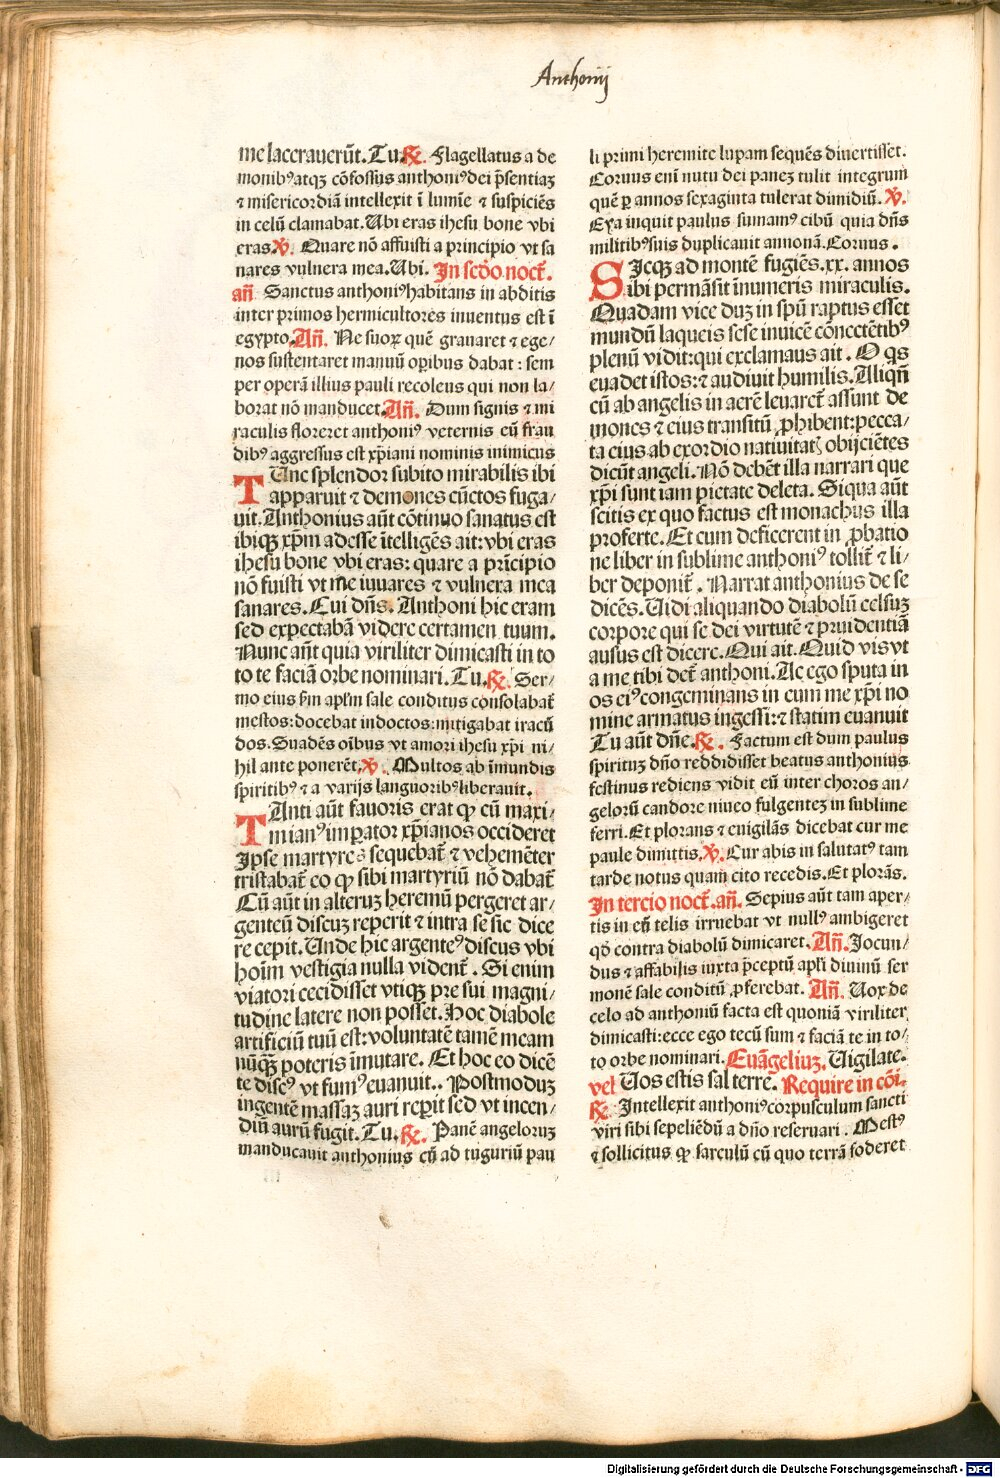 Anthonij
me lacerauerūt. Tu. ℟. Flagellatus a de
monibꝰ atqꝫ cōfossus anthoniꝰ dei p̄sentiaꝫ
⁊ misericordiā intellexit ī lumīe ⁊ suspiciēs
in celū clamabat. Ubi eras ihesu bone vbi
eras. ℣. Quare nō affuisti a principio vt sa
nares vulnera mea. Ubi. In scdo noct̄.
an̄. Sanctus anthoniꝰ habitans in abditis
inter primos hermicultores inuentus est ī
egypto. An̄. Ne suoꝝ quē grauaret ⁊ ege/
nos sustentaret manuū opibus dabat : sem
per operā illius pauli recoleus qui non la/
borat nō manducet. An̄. Dum signis ⁊ mi
raculis floreret anthoniꝰ veternis eū frau
dibꝰ aggressus est xp̄iani nominis inimicus
TUnc splendor subito mirabilis ibi
apparuit ⁊ demones cūctos fuga/
uit. Anthonius aūt cōtinuo sanatus est
ibiqꝫ xp̄m adesse ītelligēs ait: vbi eras
ihesu bone vbi eras: quare a pricipio
nō fuisti vt me iuuares ⁊ vulnera mea
sanares. Cui dn̄s. Anthoni hic eram
sed expectabā videre certamen tuum.
Nunc aūt quia viriliter dimicasti in to
to te faciā orbe nominari. Tu. ℟. Ser/
mo eius ẜm apl̄m sale conditus consolabat̄
mestos: docebat indoctos: mitigabat iracū
dos. Suadēs oībus vt amori ihesu xp̄i ni/
hil ante ponerēt. ℣. Multos ab īmundis
spiritibꝰ ⁊ a varijs languoribꝰ liberauit.
TAnti aūt fauoris erat ꝙ cū maxi/
mianꝰ imꝑator xp̄ianos occideret
Ipse martyres sequebat̄ ⁊ vehemēter
tristabat̄ eo ꝙ sibi martyriū nō dabat̄
Cū aūt in alteruꝫ heremū pergeret ar/
genteū discuꝫ reperit ⁊ intra se sic dice
re cepit. Unde hic argenteꝰ discus vbi
hoīm vestigia nulla vident̄. Si enim
viatori cecidisset vtiqꝫ pre sui magni/
tudine latere non posset. Hoc diabole
artificiū tuū est: voluntatē tamē meam
nūqꝫ̄ poteris īmutare. Et hoc eo dicē
te discꝰ vt fumꝰ euanuit.. Postmoduꝫ
ingentē massaꝫ auri reꝑit sed vt incen/
diū aurū fugit. Tu. ℟. Panē angeloruꝫ
manducauit anthonius cū ad tuguriū pau
li primi heremite lupam sequēs diuertisset.
Coruus enī nutu dei paneꝫ tulit integrum
quē ꝑ annos sexaginta tulerat dimidiū. ℣.
Eya inquit paulus sumamꝰ cibū quia dn̄s
militibꝰ suis duplicauit annonā. Coruus.
SIcqꝫ ad montē fugiēs. xx. annos
ibi permāsit īnumeris miraculis.
Quadam vice duꝫ in spū raptus esset
mundū laqueis sese inuicē cōnectētibꝰ
plenū vidit: qui exclamaus ait. O qs
euadet istos: ⁊ audiuit humilis. Aliqn̄
cū ab angelis in aerē leuaret̄ assunt de
mones ⁊ eius transitū ꝓhibent: pecca/
ta eius ab exordio natiuitatꝭ obijciētes
dicūt angeli. Nō debēt illa narrari que
xp̄i sunt iam pietate deleta. Siqua aūt
scitis ex quo factus est monachus illa
proferte. Et cum deficerent in ꝓbatio
ne liber in sublime anthoniꝰ tollit̄ ⁊ li/
ber deponit̄. Narrat anthonius de se
dicēs. Uidi aliquando diabolū celsuꝫ
corpore qui se dei virtutē ⁊ pruidentiā
ausus est dicere. Qui ait. Quid vis vt
a me tibi det̄ anthoni. At ego sputa in
os eiꝰ congeminans in eum me xp̄i no
mine armatus ingessi: ⁊ statim euanuit
Tu aūt dn̄e. ℟. Factum est dum paulus
spirituꝫ dn̄o reddidisset beatus anthonius
festinus rediens vidit eū inter choros an/
gelorū candore niueo fulgenteꝫ in sublime
ferri. Et plorans ⁊ euigilās dicebat cur me
paule dimittis. ℣. Cur abis in salutatꝰ tam
tarde notus quam cito recedis. Et plorās.
In tercio noct̄. an̄. Sepius aūt tam aper/
tis in eū telis irruebat vt nullꝰ ambigeret
qđ contra diabolū dimicaret. An̄. Jocun/
dus ⁊ affabilis iuxta p̄ceptū apl̄i diuinū ser
monē sale conditū ꝓferebat. An̄. Uox de
celo ad anthoniū facta est quoniā viriliter
dimicasti: ecce ego tecū sum ⁊ faciā te in to/
to orbe nominari. Euāgeliuꝫ. Uigilate.
vel Uos estis sal terre. Require in cōi.
℟. Intellexit anthoniꝰ corpusculum sancti
viri sibi sepeliēdū a dn̄o reseruari. Mestꝰ
⁊ sollicitus ꝙ sarculū cū quo terrā foderet
Digitalisierung gefördert durch die Deutsche Forschungsgemeinschaft - DFG